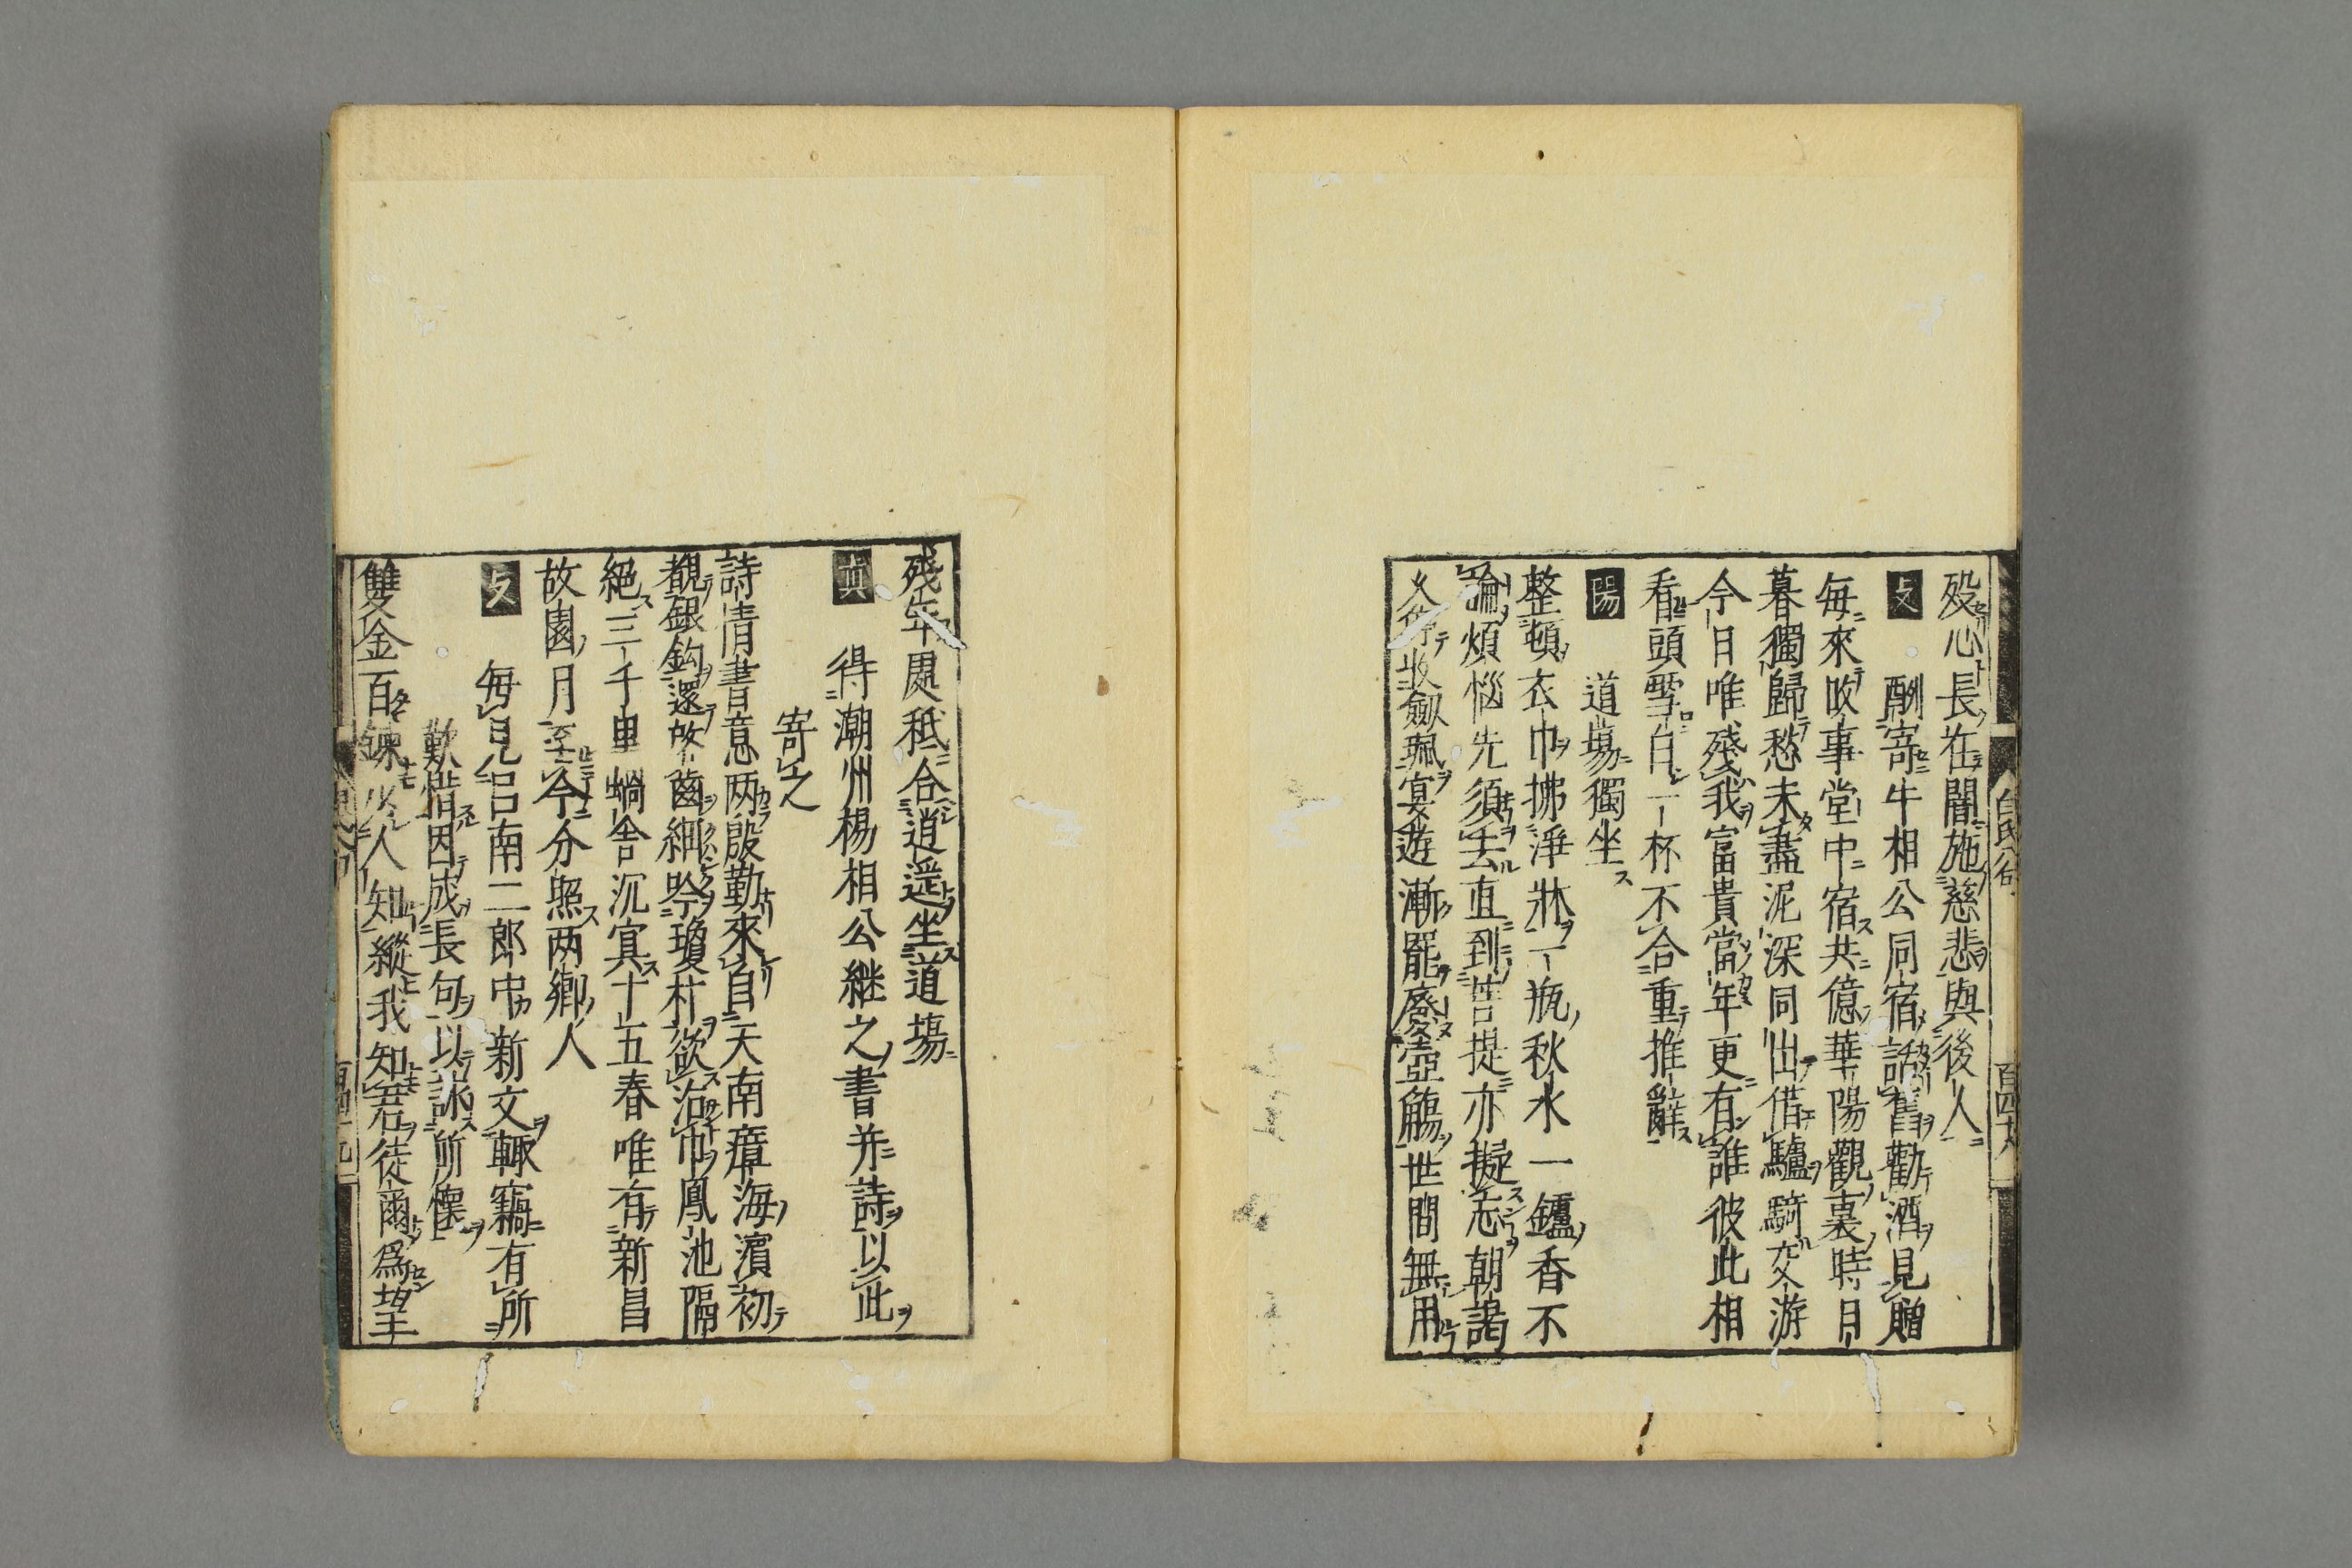 歿心長在闇施慈悲與後人
攴 酬寄牛相公同宿話舊勸酒見贈
每來政事堂中宿共億華陽觀裏時日
暮獨歸愁未盡泥深同出借驢騎交游
今日唯殘我富貴當年更有誰彼此相
看頭雪白一杯不合重推辭
陽 道場獨坐
整頓衣巾拂淨牀一瓶秋水一鑪香不
論煩惱先須去直到菩提亦擬忘朝謁
久停收劔珮宴遊漸罷廢壺觴世間無用
殘年處秖合逍遥坐道場
真 得潮州楊相公継之書并詩以此
寄之
詩情書意两殷勤來自天南瘴海濱初
覩銀鈎還啓齒細吟瓊村欲沾巾鳳池隔
絕三千里蝸舍沉冥十五春唯有新昌
故園月至今分照两鄉人
攴 每見呂南二郎中新文輙竊有所
歎惜因成長句以詠所懷
雙金百鍊少人知縱我知君徒爾爲望